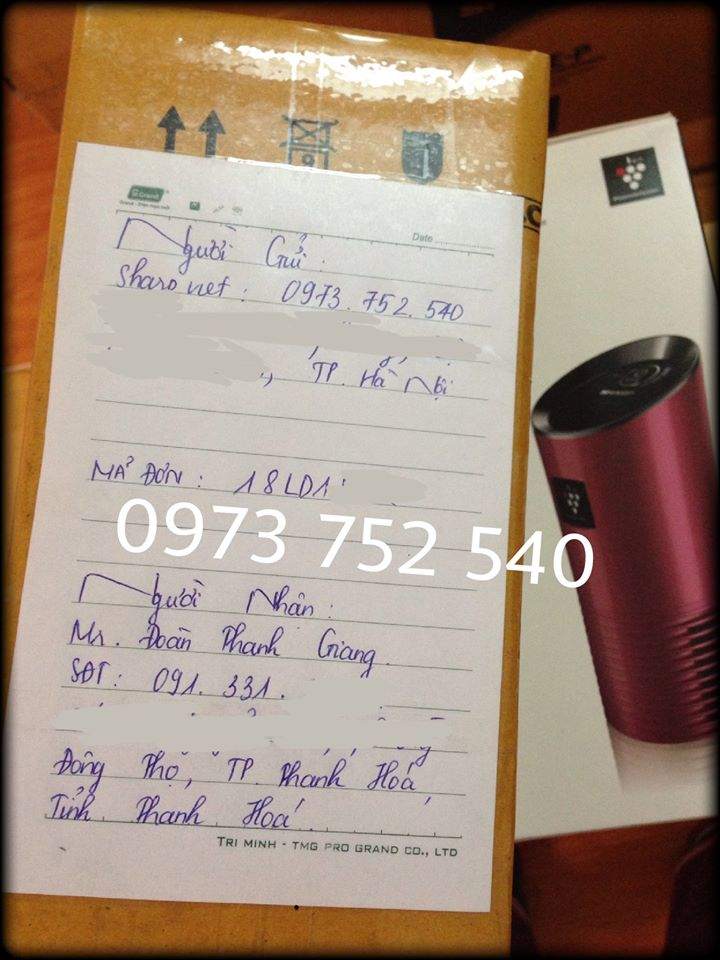 Grand
Date
Người Gửi:
Sharo net: 0973. 752. 540
, TP. Hà Nội
MÃ ĐƠN: 18LD1
0973 752 540
Người Nhận:
Mr. Đoàn Thanh Giang
SĐT: 091. 331.
Đông Thọ, TP. Thanh Hoá,
Tỉnh Thanh Hoá.
TRI MINH - TMG PRO GRAND CO., LTD